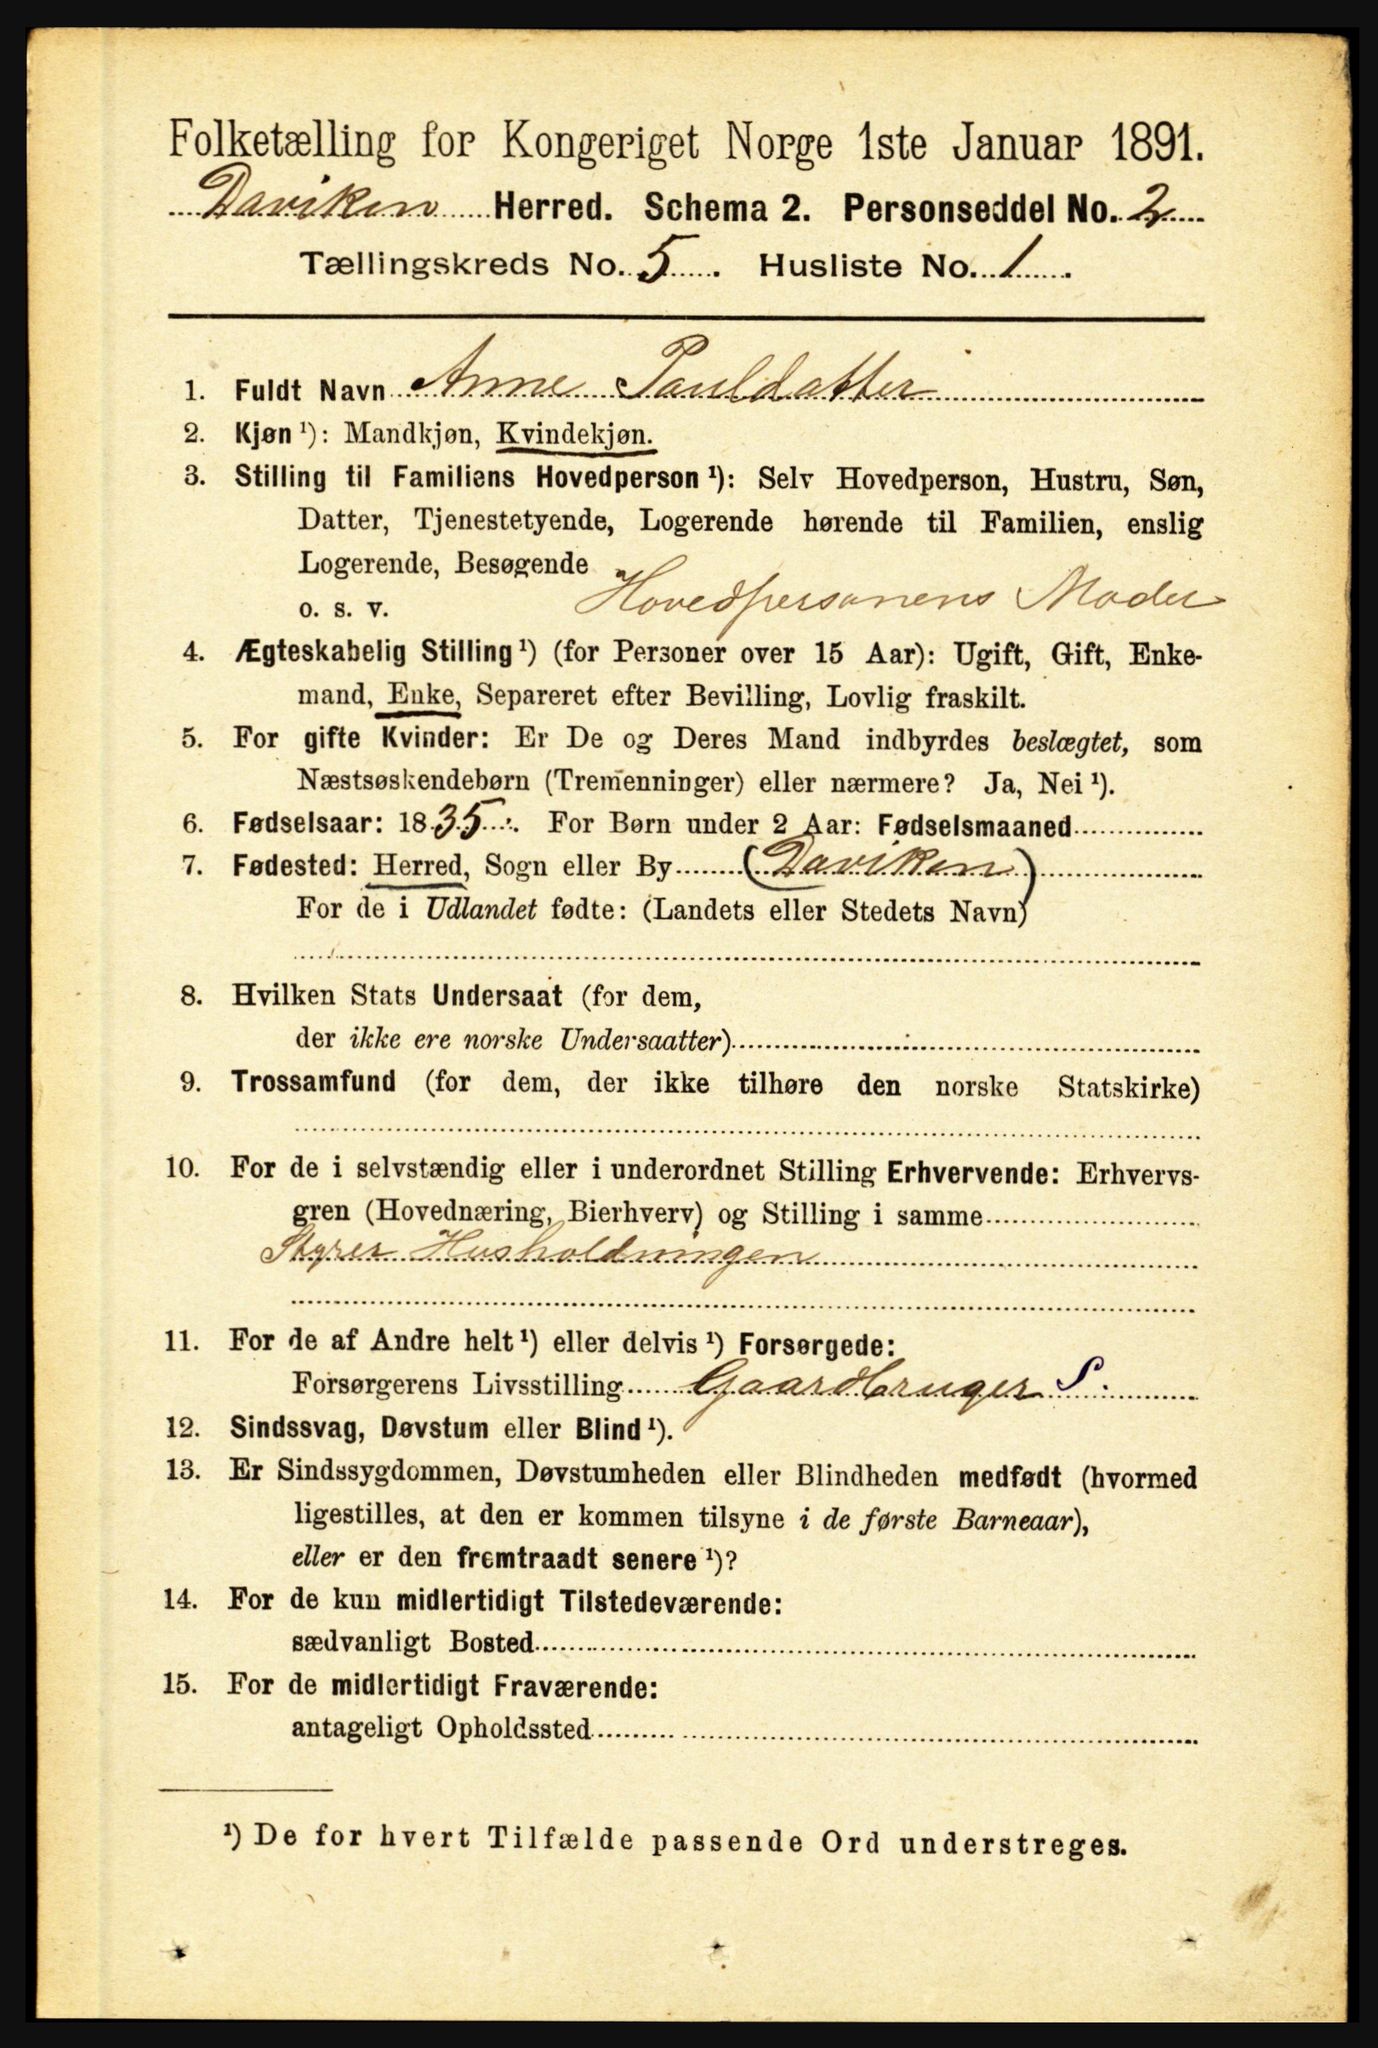 Folketælling for Kongeriget Norge 1ste Januar 1891.
Daviken Herred. Schema 2. Personseddel No. 2
Tællingskreds No. 5. Husliste No. 1.
1. Fuldt Navn Anne Pauldatter
2. Kjøn ¹): Mandkjøn, Kvindekjøn.
3. Stilling til Familiens Hovedperson ¹): Selv Hovedperson, Hustru, Søn,
Datter, Tjenestetyende, Logerende hørende til Familien, enslig
Logerende, Besøgende
o. s. v. Hovedpersonens Moder
4. Ægteskabelig Stilling ¹) (for Personer over 15 Aar): Ugift, Gift, Enke-
mand, Enke, Separeret efter Bevilling, Lovlig fraskilt.
5. For gifte Kvinder: Er De og Deres Mand indbyrdes beslægtet, som
Næstsøskendebørn (Tremenninger) eller nærmere? Ja, Nei ¹).
6. Fødselsaar: 1835. For Børn under 2 Aar: Fødselsmaaned
7. Fødested: Herred, Sogn eller By (Daviken)
For de i Udlandet fødte: (Landets eller Stedets Navn)
8. Hvilken Stats Undersaat (for dem,
der ikke ere norske Undersaatter)
9. Trossamfund (for dem, der ikke tilhøre den norske Statskirke)
10. For de i selvstændig eller i underordnet Stilling Erhvervende: Erhvervs-
gren (Hovednæring, Bierhverv) og Stilling i samme
Styrer Husholdningen
11. For de af Andre helt ¹) eller delvis ¹) Forsørgede:
Forsørgerens Livsstilling Gaardbruger S.
12. Sindssvag, Døvstum eller Blind ¹).
13. Er Sindssygdommen, Døvstumheden eller Blindheden medfødt (hvormed
ligestilles, at den er kommen tilsyne i de første Barneaar),
eller er den fremtraadt senere ¹)?
14. For de kun midlertidigt Tilstedeværende:
sædvanligt Bosted
15. For de midlertidigt Fraværende:
antageligt Opholdssted
¹) De for hvert Tilfælde passende Ord understreges.